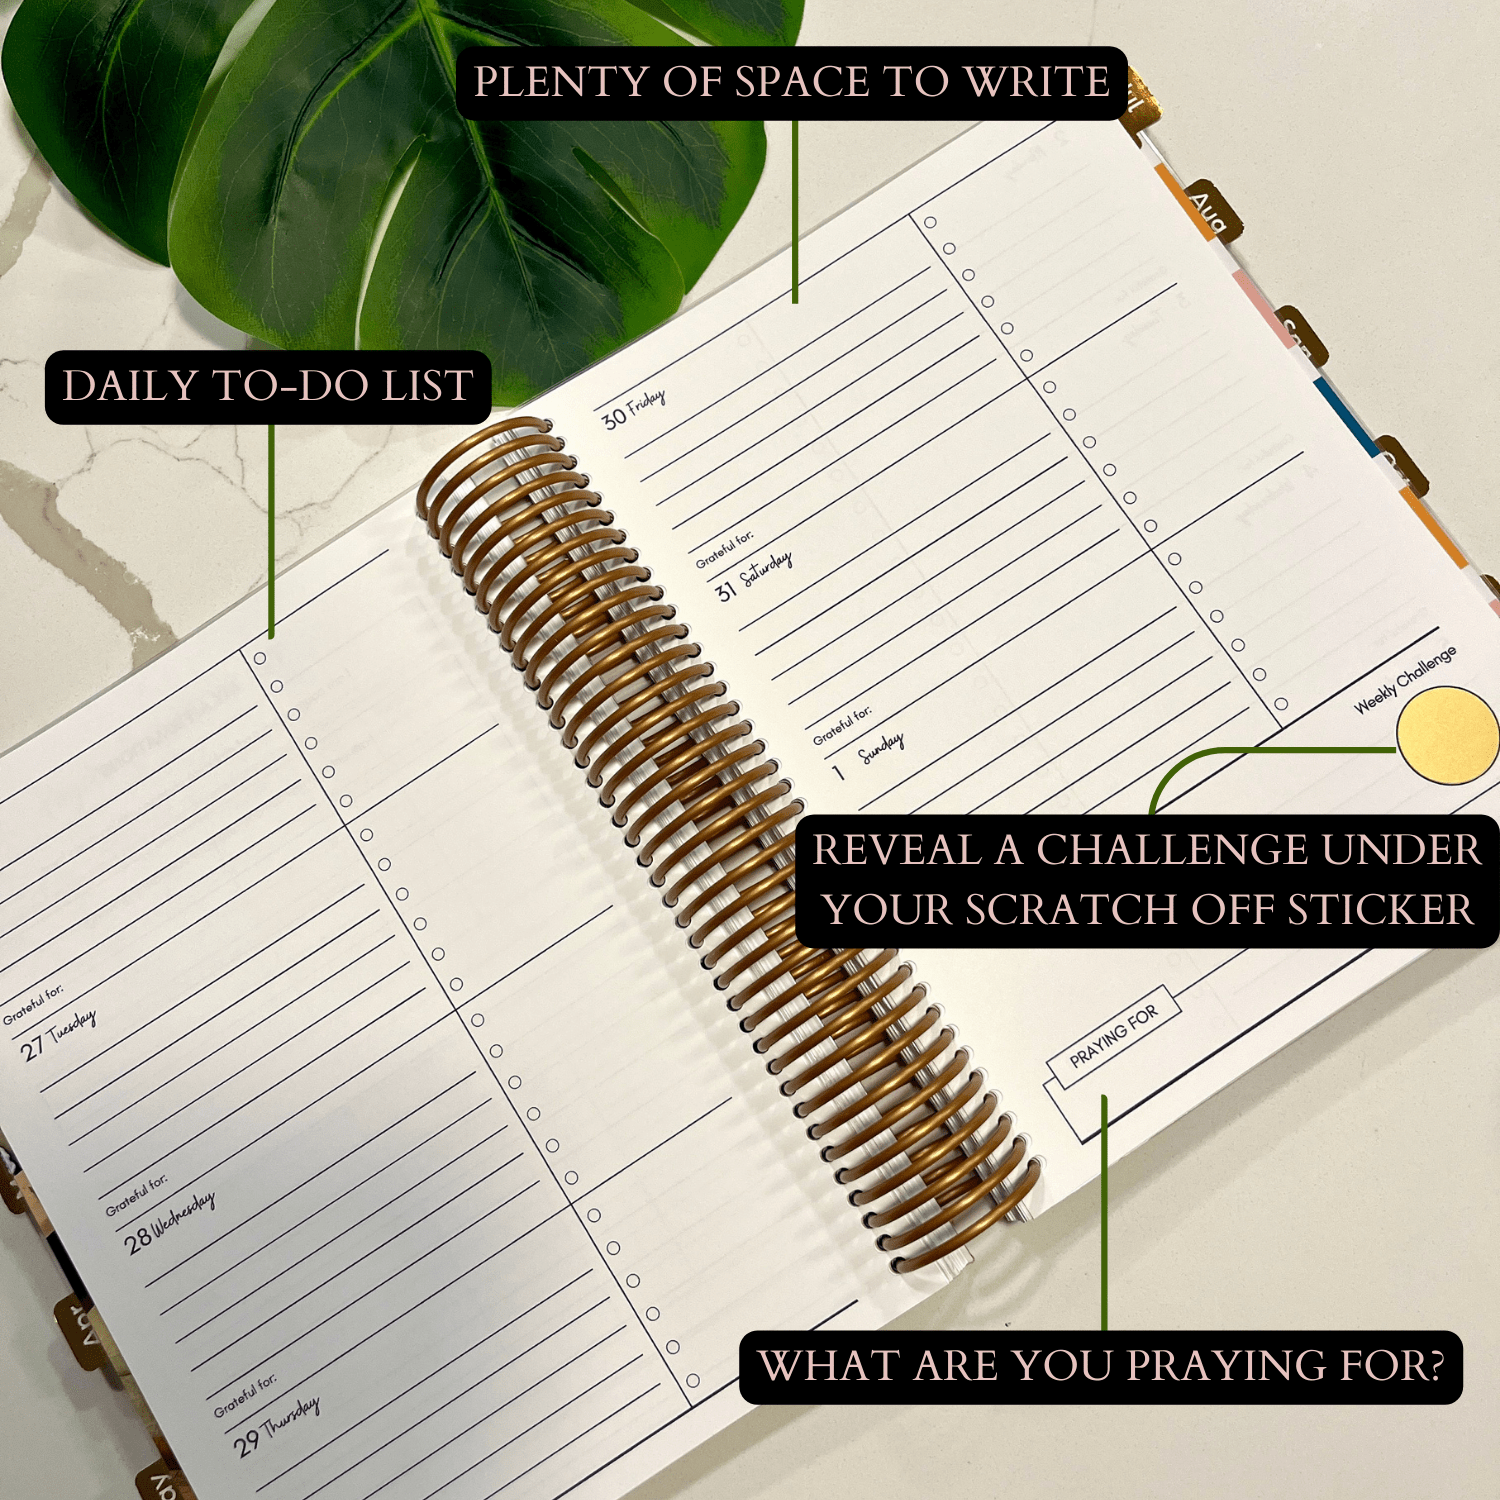 PLENTY OF SPACE TO WRITE
Aug
DAILY TO-DO LIST
30 Friday
Grateful for:
31 Saturday
Grateful for:
1 Sunday
Weekly Challenge
REVEAL A CHALLENGE UNDER
YOUR SCRATCH OFF STICKER
Grateful for:
27 Tuesday
Grateful for:
28 Wednesday
Grateful for:
29 Thursday
PRAYING FOR
Apr
WHAT ARE YOU PRAYING FOR?